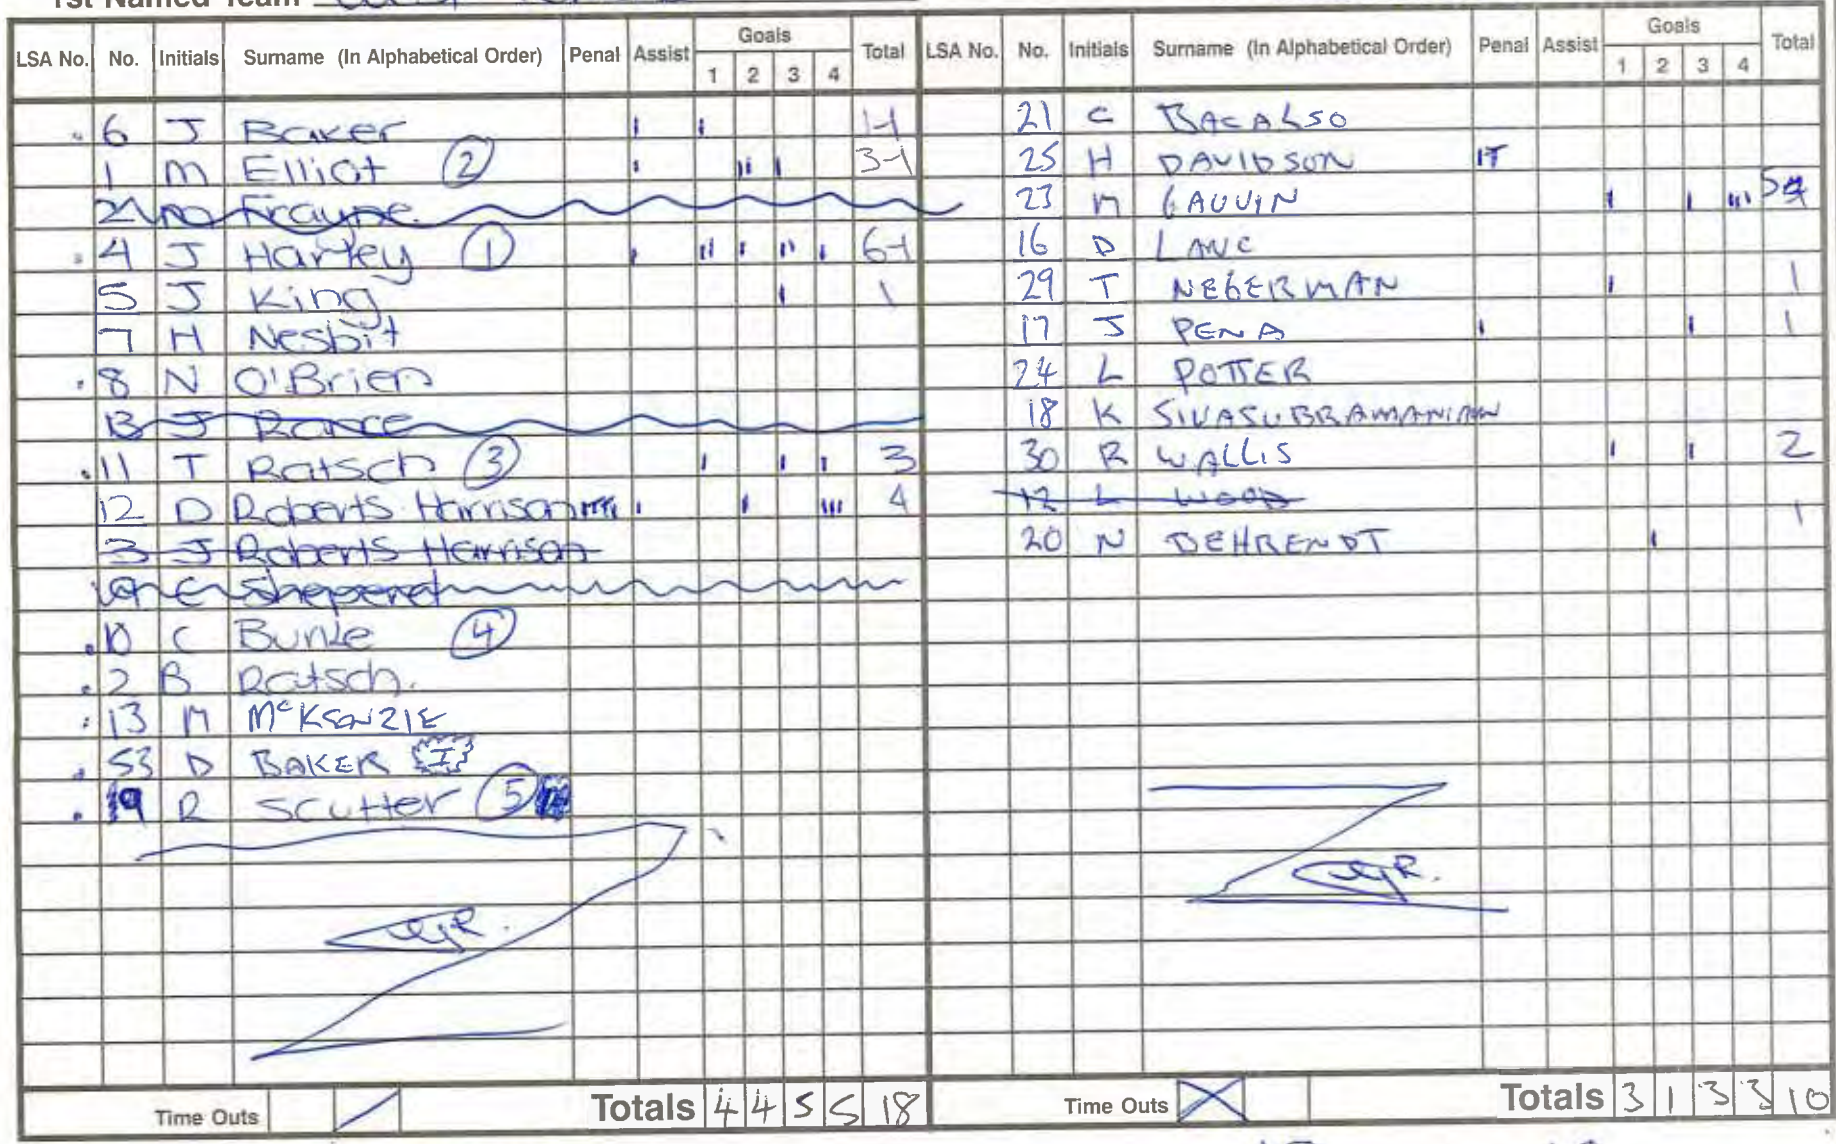 1st Named Team
LSA No. No. Initials Surname (In Alphabetical Order) Penal Assist Goals 1 2 3 4 Total
6 J Baker 1-1
1 M Elliot 2 3-1
Frayne
4 J Hartley 1 6-1
5 J King 1
7 H Nesbit
8 N O'Brien
13 J Rance
11 T Ratsch 3 3
12 D Roberts Harrison 4
3 J Roberts Harrison
C Sheperd
10 C Bunke 4
2 B Ratsch.
13 M McKENZIE
53 D BAKER I
19 R Scutter 5
Time Outs Totals 4 4 5 5 18
LSA No. No. Initials Surname (In Alphabetical Order) Penal Assist Goals 1 2 3 4 Total
21 C BACALSO
25 H DAVIDSON 1T
23 M GAUVIN 5
16 D LANC
29 T NEGERMAN 1
17 J PENA 1
24 L POTTER
18 K SIVASUBRAMANIAN
30 R WALLIS 2
12 L WOOD
20 N BEHRENDT 1
Time Outs Totals 3 1 3 3 10